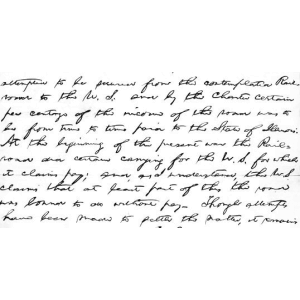 to be  from the contemplated Rail-
road to the U.S. and by the Charter certain
per centage of the income of the road was to
be from time to time paid to the State of Illinois.
At the beginning of the present war the Rail-
road did certain carrying for the U.S. for which
it claims pay; and, as I understand, the U.S.
claims that at least part of this the road
was bound to do without pay. Though attempts
have been made to settle the matter, it remains